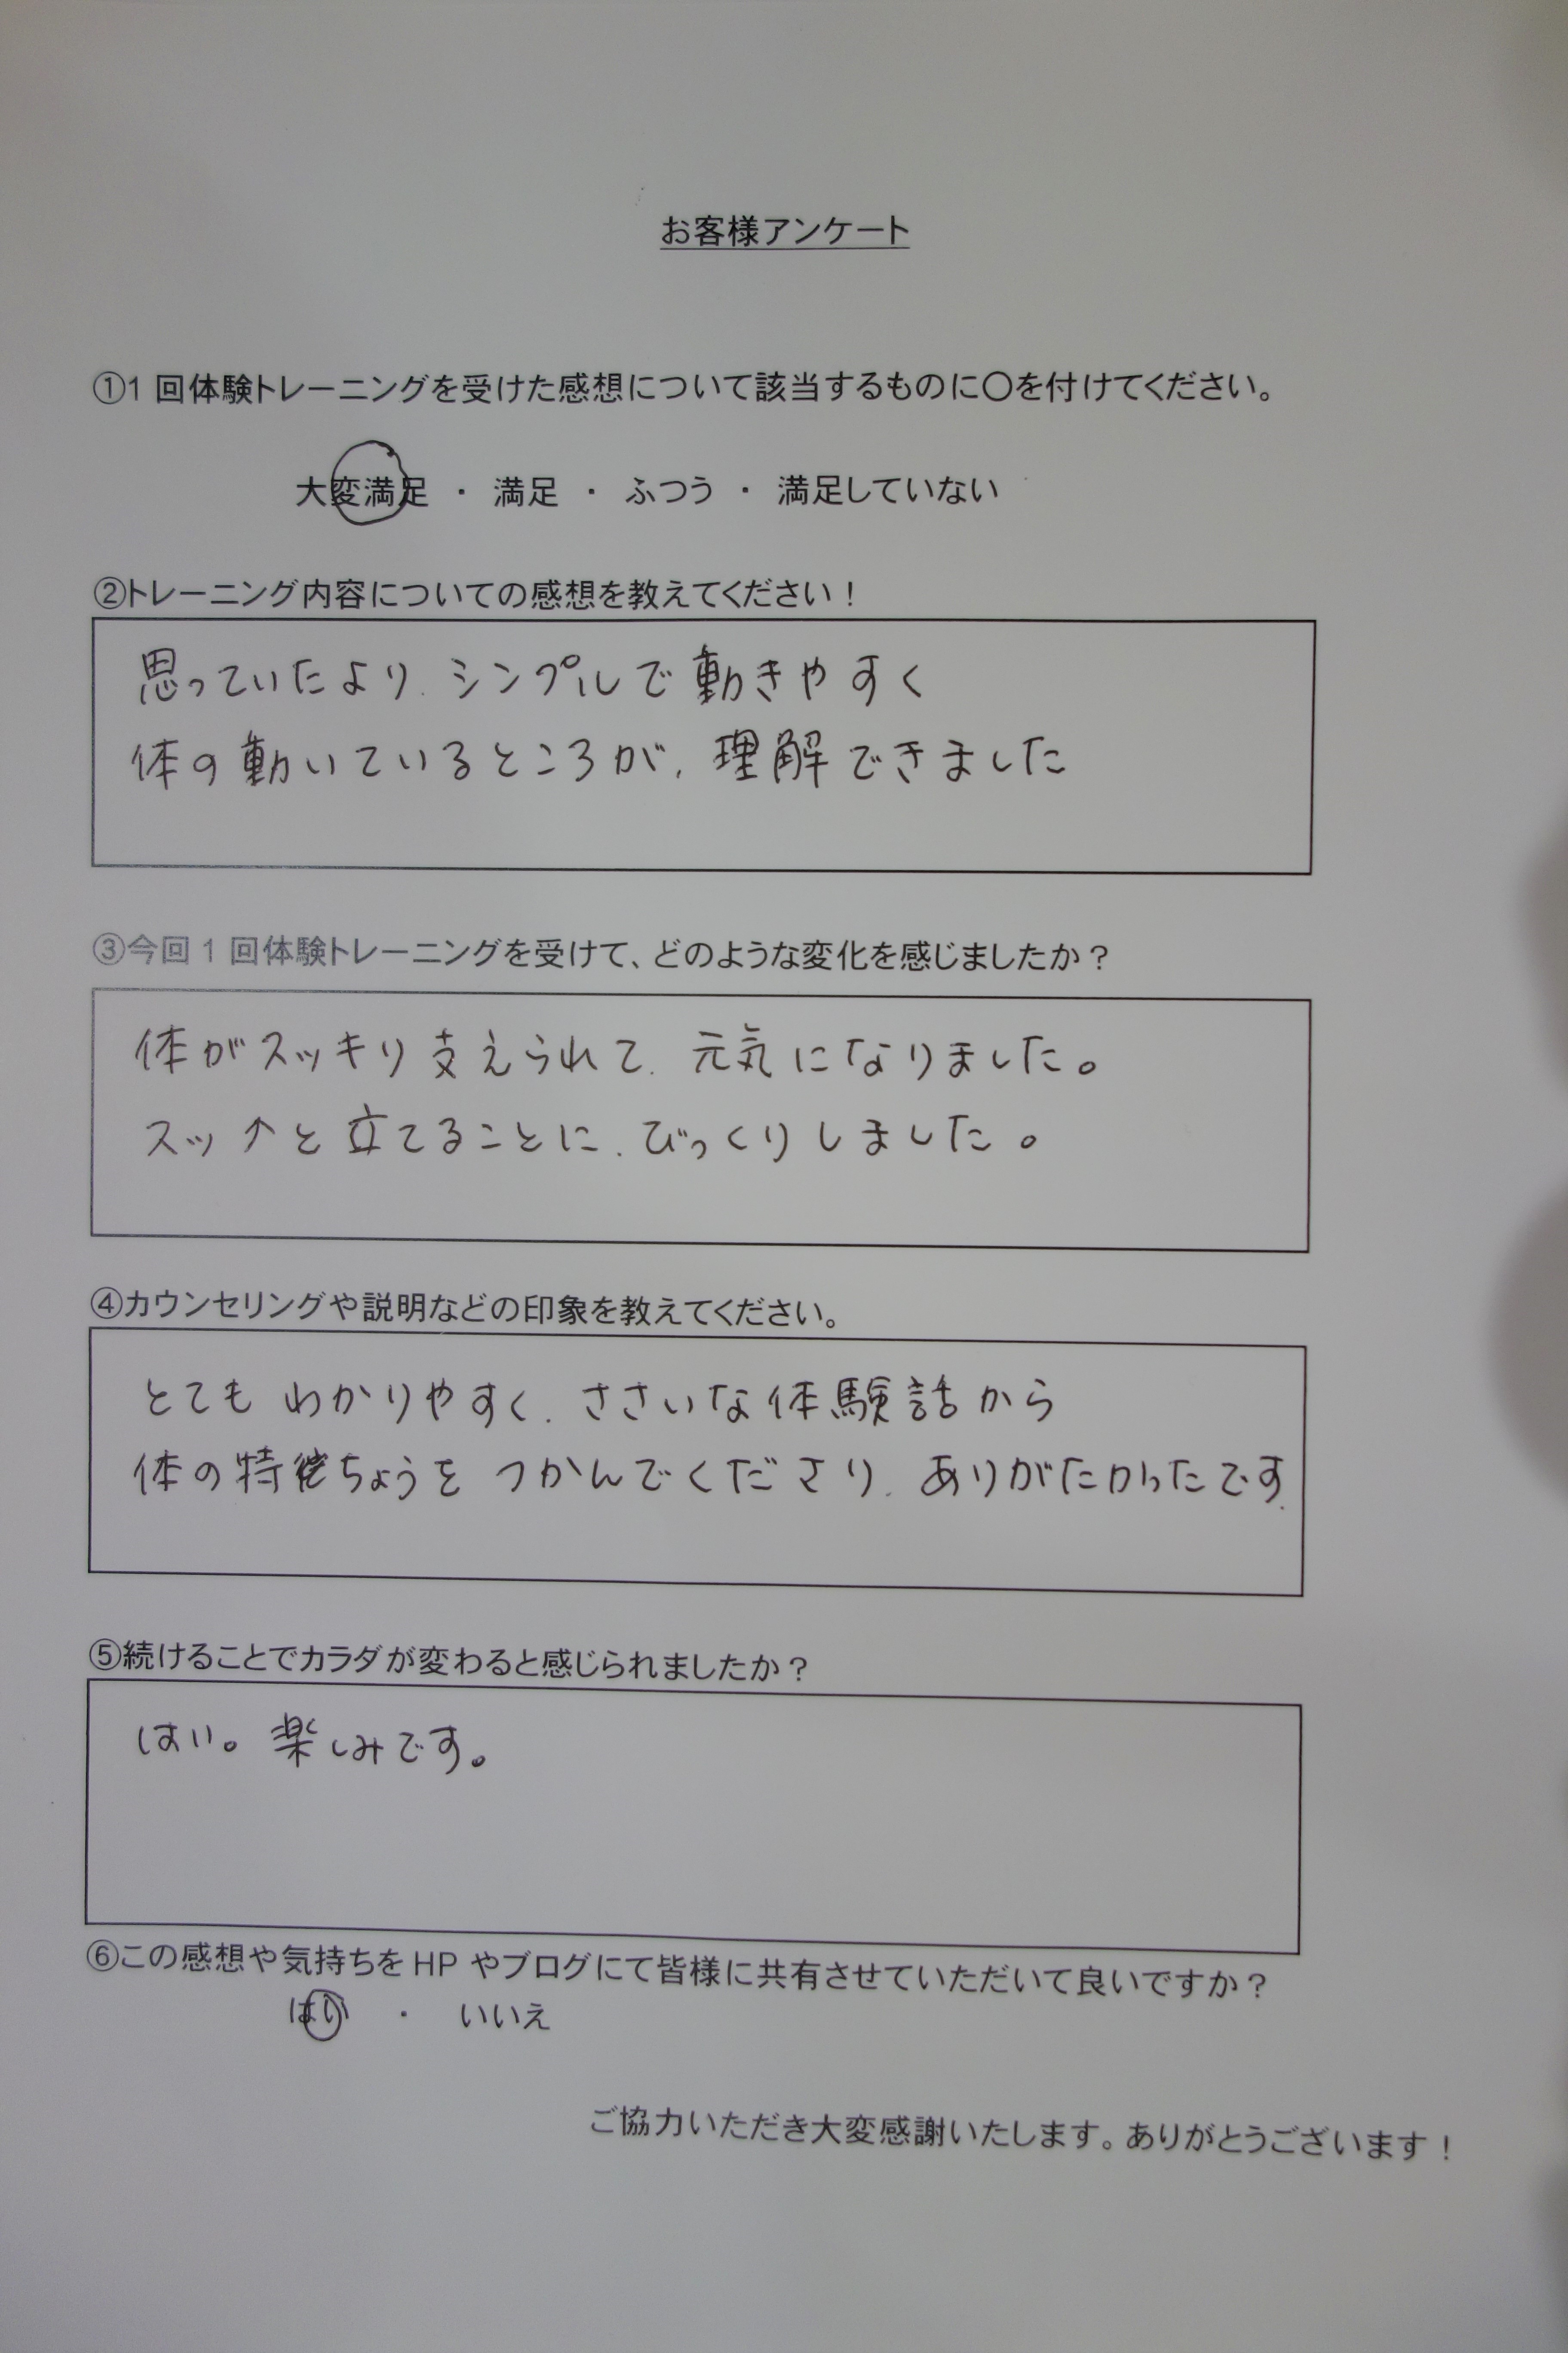 お客様アンケート
①1 回体験トレーニングを受けた感想について該当するものに〇を付けてください。
大変満足 ・ 満足 ・ ふつう ・ 満足していない
②トレーニング内容についての感想を教えてください！
思っていたより、シンプルで動きやすく
体の動いているところが、理解できました
③今回 1 回体験トレーニングを受けて、どのような変化を感じましたか？
体がスッキリ支えられて、元気になりました。
スッ↑と立てることに、びっくりしました。
④カウンセリングや説明などの印象を教えてください。
とてもわかりやすく、ささいな体験話から
体の特ちょうをつかんでくださり、ありがたかったです.
⑤続けることでカラダが変わると感じられましたか？
はい。楽しみです。
⑥この感想や気持ちを HP やブログにて皆様に共有させていただいて良いですか？
はい ・ いいえ
ご協力いただき大変感謝いたします。ありがとうございます！